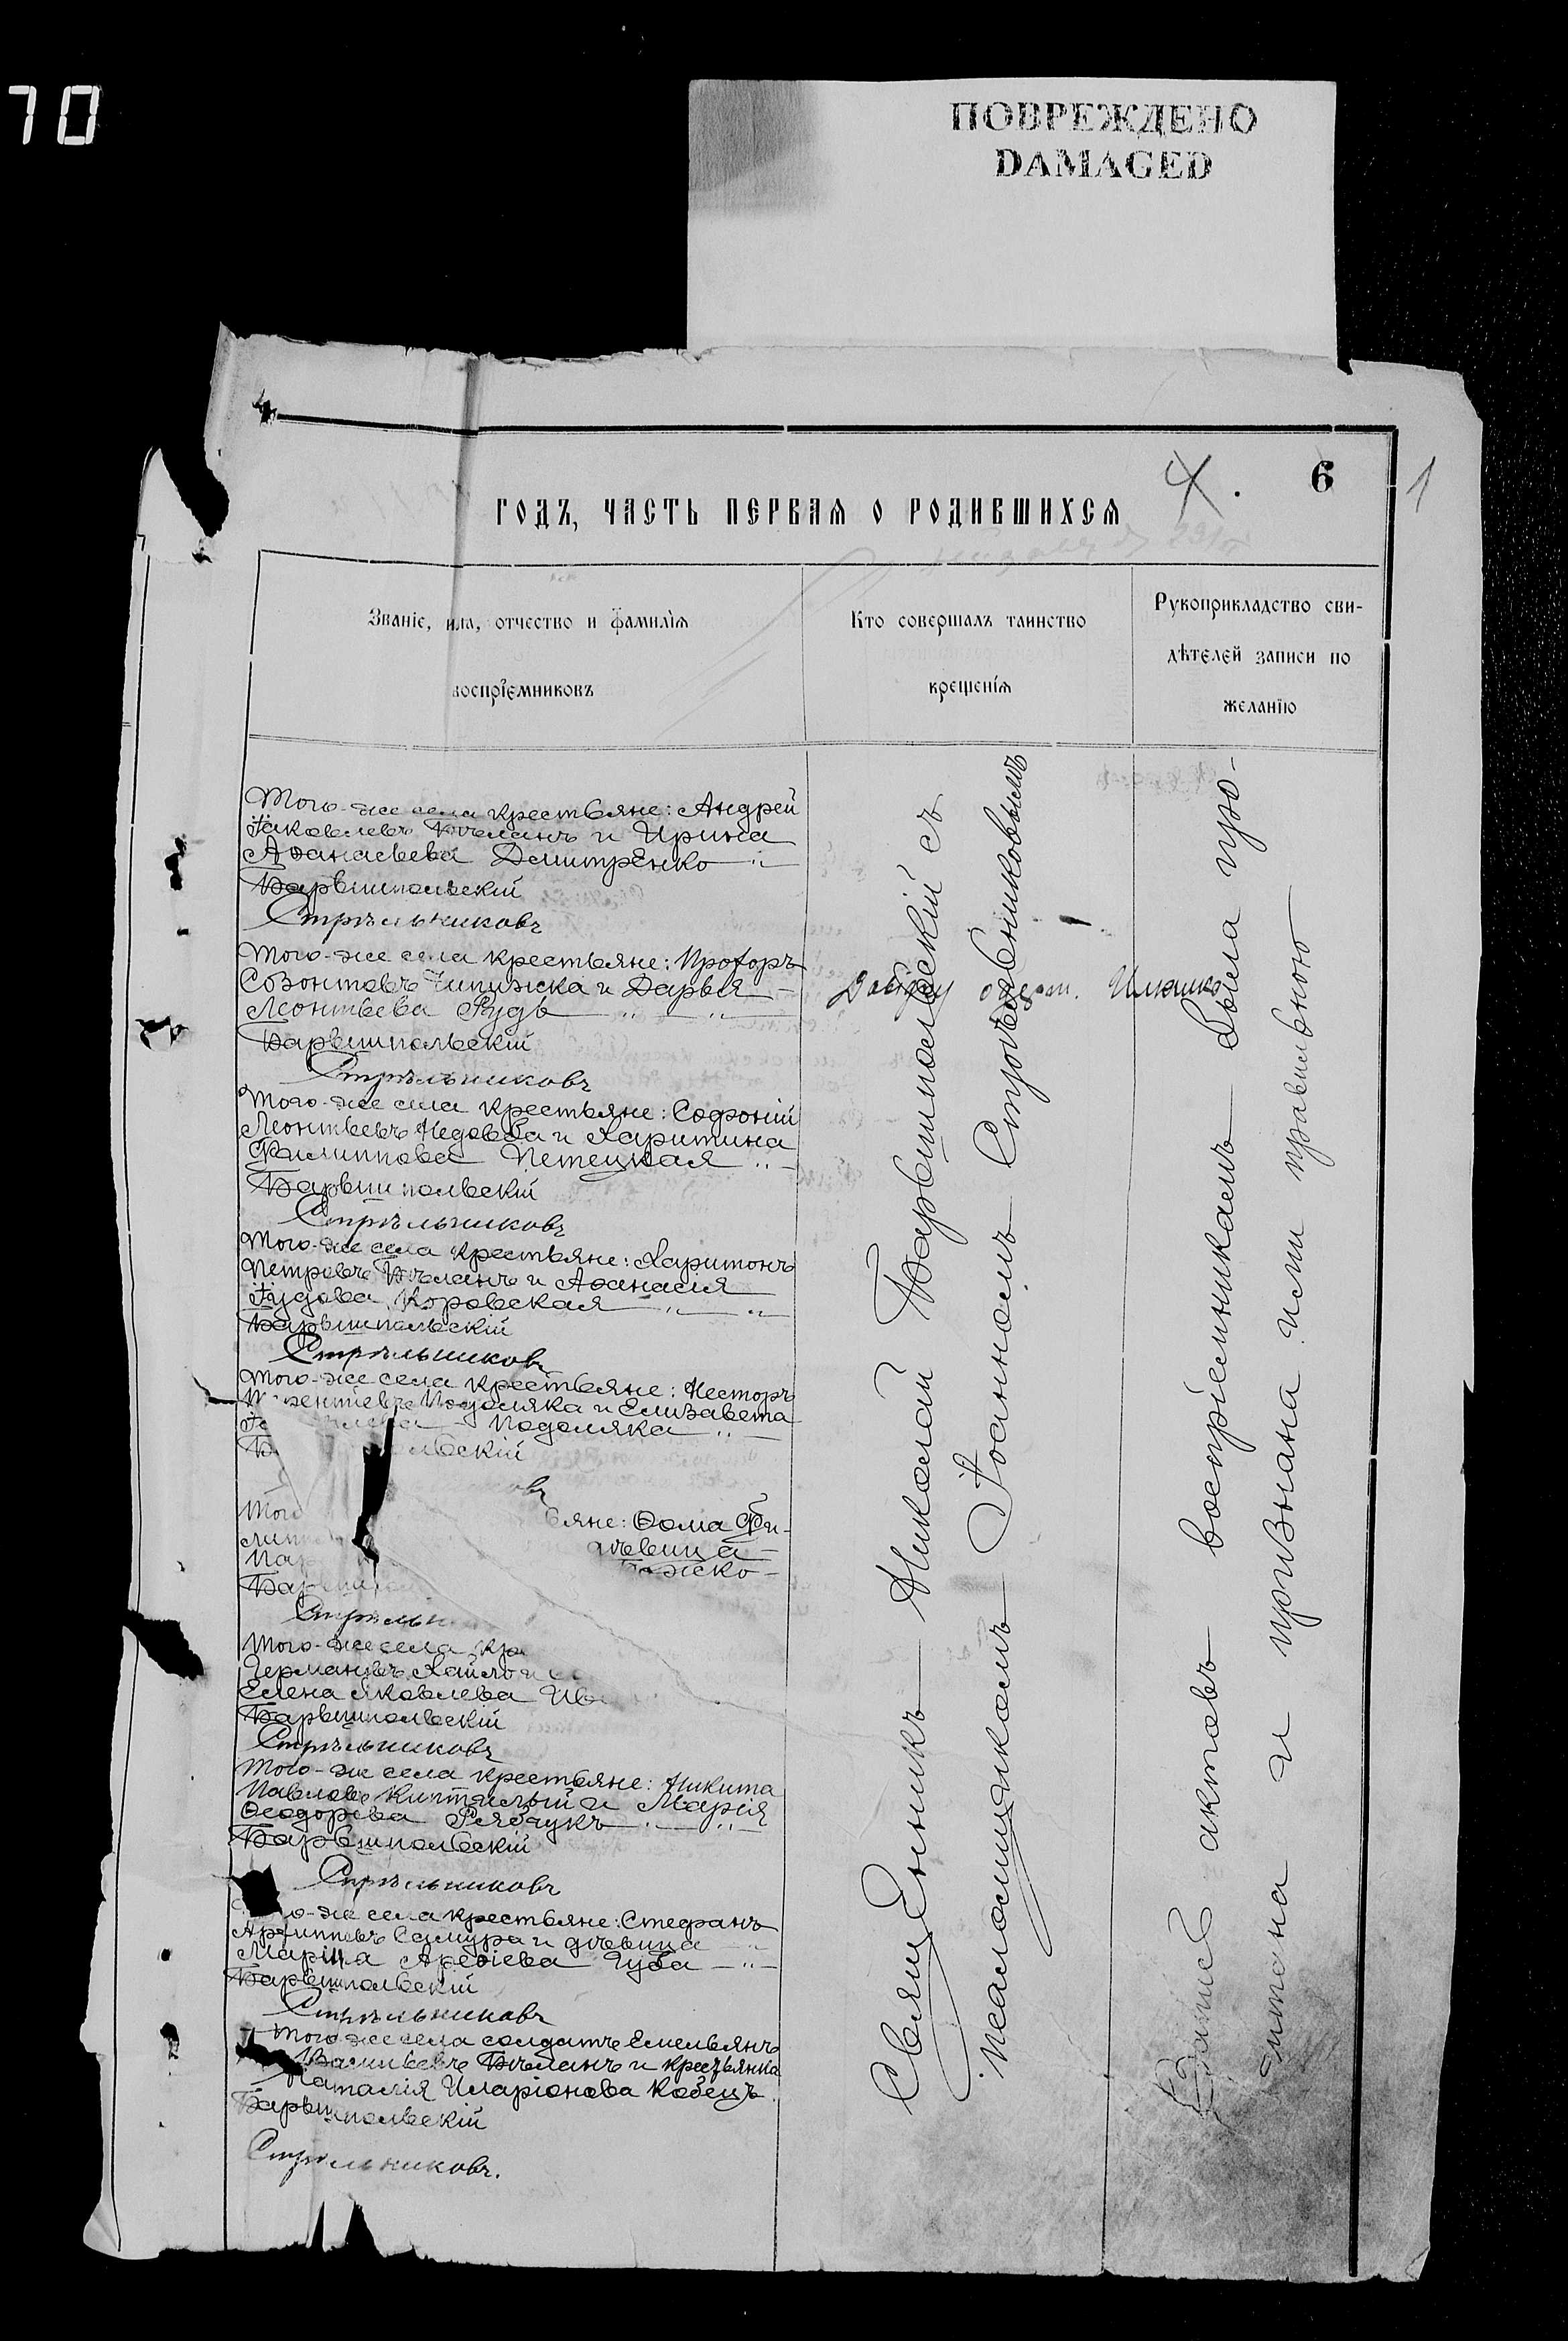 70
ПОВРЕЖДЕНО
DAMAGED
4.
6
1
ГОДЪ, ЧАСТЬ ПЕРВАЯ О РОДИВШИХСЯ
Званіе, имя, отчество и фамилія
воспріемниковъ
Кто совершалъ таинство
крещенія
Рукоприкладство сви-
дѣтелей записи по
желанію
Того-же села крестьяне: Андрей
Іаковлевъ Бѣланъ и Ирина
Аѳанасьева Дмитренко
Барвишпольскій
Стрѣльниковъ
Того-же села крестьяне: Прохоръ
Созонтовъ Чипижка и Дарья
Леонтьева Рудь
Барвишпольскій
Стрѣльниковъ
Того-же села крестьяне: Софоній
Леонтьевъ Недовба и Харитина
Филиппова Петецкая
Барвишпольскій
Стрѣльниковъ
Того-же села крестьяне: Харитонъ
Петровъ Бѣланъ и Аѳанасія
Іудова Коровская
Барвишпольскій
Стрѣльниковъ
Того-же села крестьяне: Несторъ
Подоляка и Елизавета
Подоляка
льскій
овъ
Того
ьяне: Ѳома Фи-
дѣвица
Стрѣльн
Того-же села
Германовъ Хайло и
Елена Яковлева
Барвишпольскій
Стрѣльниковъ
Того-же села крестьяне: Никита
Павловъ и Марія
Ѳеодорова Рябчукъ
Барвишпольскій
Стрѣльниковъ
о-же села крестьяне: Стефанъ
Архипповъ Самура и дѣвица
Марина Ареѳіева Губа
Барвишпольскій
Стрѣльниковъ
Того-же села солдатъ Емельянъ
Васильевъ Бѣланъ и крестьянка
Наталія Иларіонова Кобецъ
Барвишпольскій
Стрѣльниковъ.
Священникъ Николай Барвишпольскій съ
псаломщикомъ Іоанномъ Стрѣльниковымъ
Запись актовъ воспріемникамъ была про-
читана и признана ими правильною